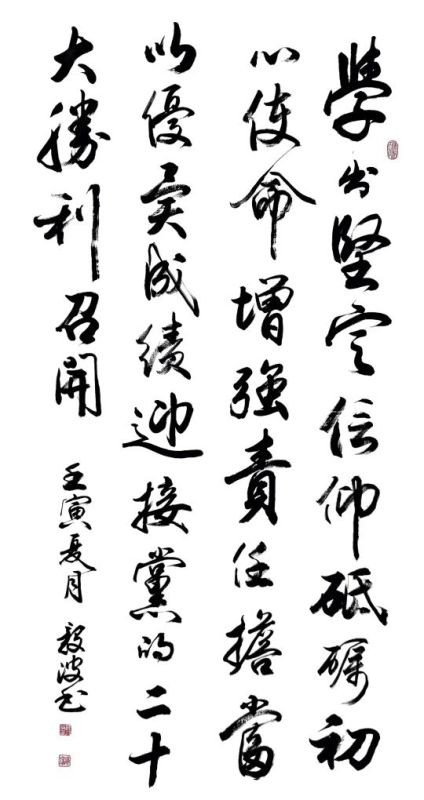 學出堅定信仰砥礪初
心使命增强責任擔當
以優異成績迎接黨的二十
大勝利召開
壬寅夏月 毅波书